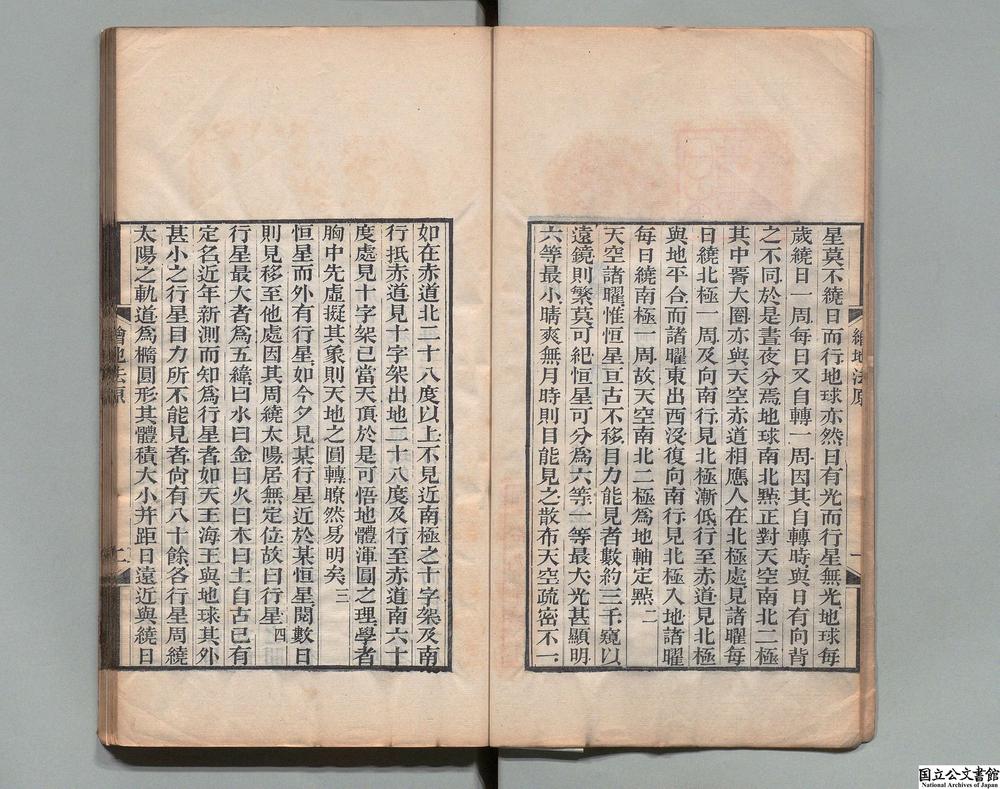 星莫不繞日而行地球亦然日有光而行星無光地球每
歲繞日一周每日又自轉一周因其自轉時與日有向背
之不同於是晝夜分焉地球南北㸃正對天空南北二極
其中腰大圈亦與天空赤道相應人在北極處見諸曜每
日繞北極一周及向南行見北極漸低行至赤道見北極
與地平合而諸曜東出西沒復向南行見北極入地諸曜
每日繞南極一周故天空南北二極為地軸定㸃二
天空諸曜惟恒星亘古不移目力能見者數約三千窺以
遠鏡則繁莫可紀恒星可分為六等一等最大光甚顯明
六等最小晴爽無月時則目能見之散布天空疏密不一
繪地法原
一
如在赤道北二十八度以上不見近南極之十字架及南
行抵赤道見十字架出地二十八度及行至赤道南六十
度處見十字架已當天頂於是可悟地體渾圓之理學者
胸中先虛擬其象則天地之圓轉瞭然易明矣三
恒星而外有行星如今夕見某行星近於某恒星閱數日
則見移至他處因其周繞太陽居無定位故曰行星四
行星最大者為五緯曰水曰金曰火曰木曰土自古已有
定名近年新測而知為行星者如天王海王與地球其外
甚小之行星目力所不能見者尚有八十餘各行星周繞
太陽之軌道為橢圓形其體積大小并距日遠近與繞日
繪地法原
国立公文書館
National Archives of Japan